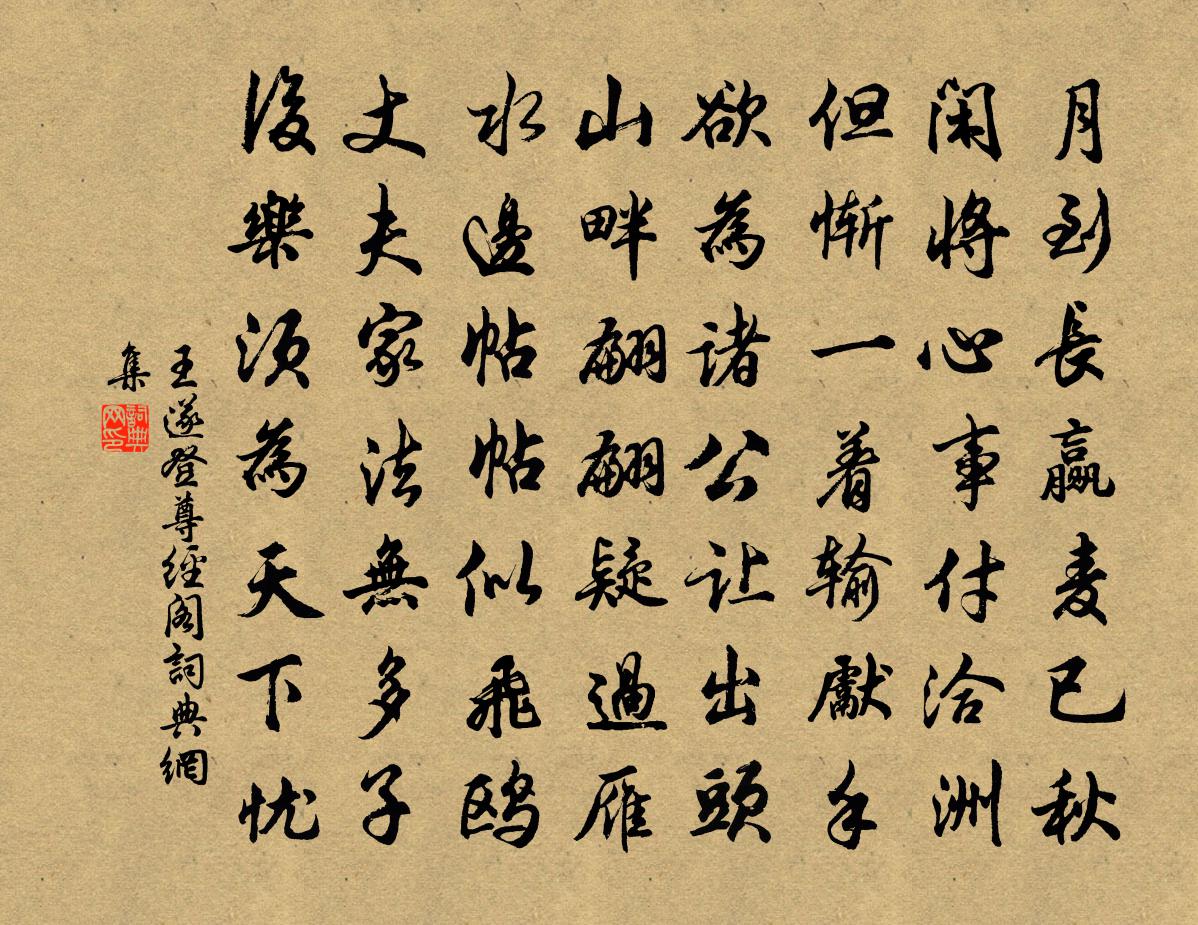 月到長贏麦已秋
闲將心事付沧洲
但慚一着输獻手
欲為諸公让出頭
山畔翩翩疑過雁
水邊帖帖似飛鸥
丈夫家法無多子
後樂须為天下忧
王遂登尊經阁詞典網
集
詞典网印